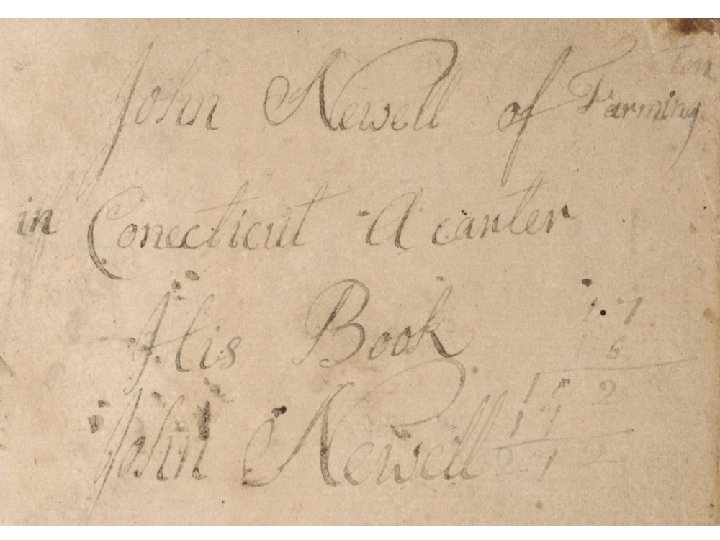 John Newell of Farming
ton
in Conecticut A canter
His Book
John Newell